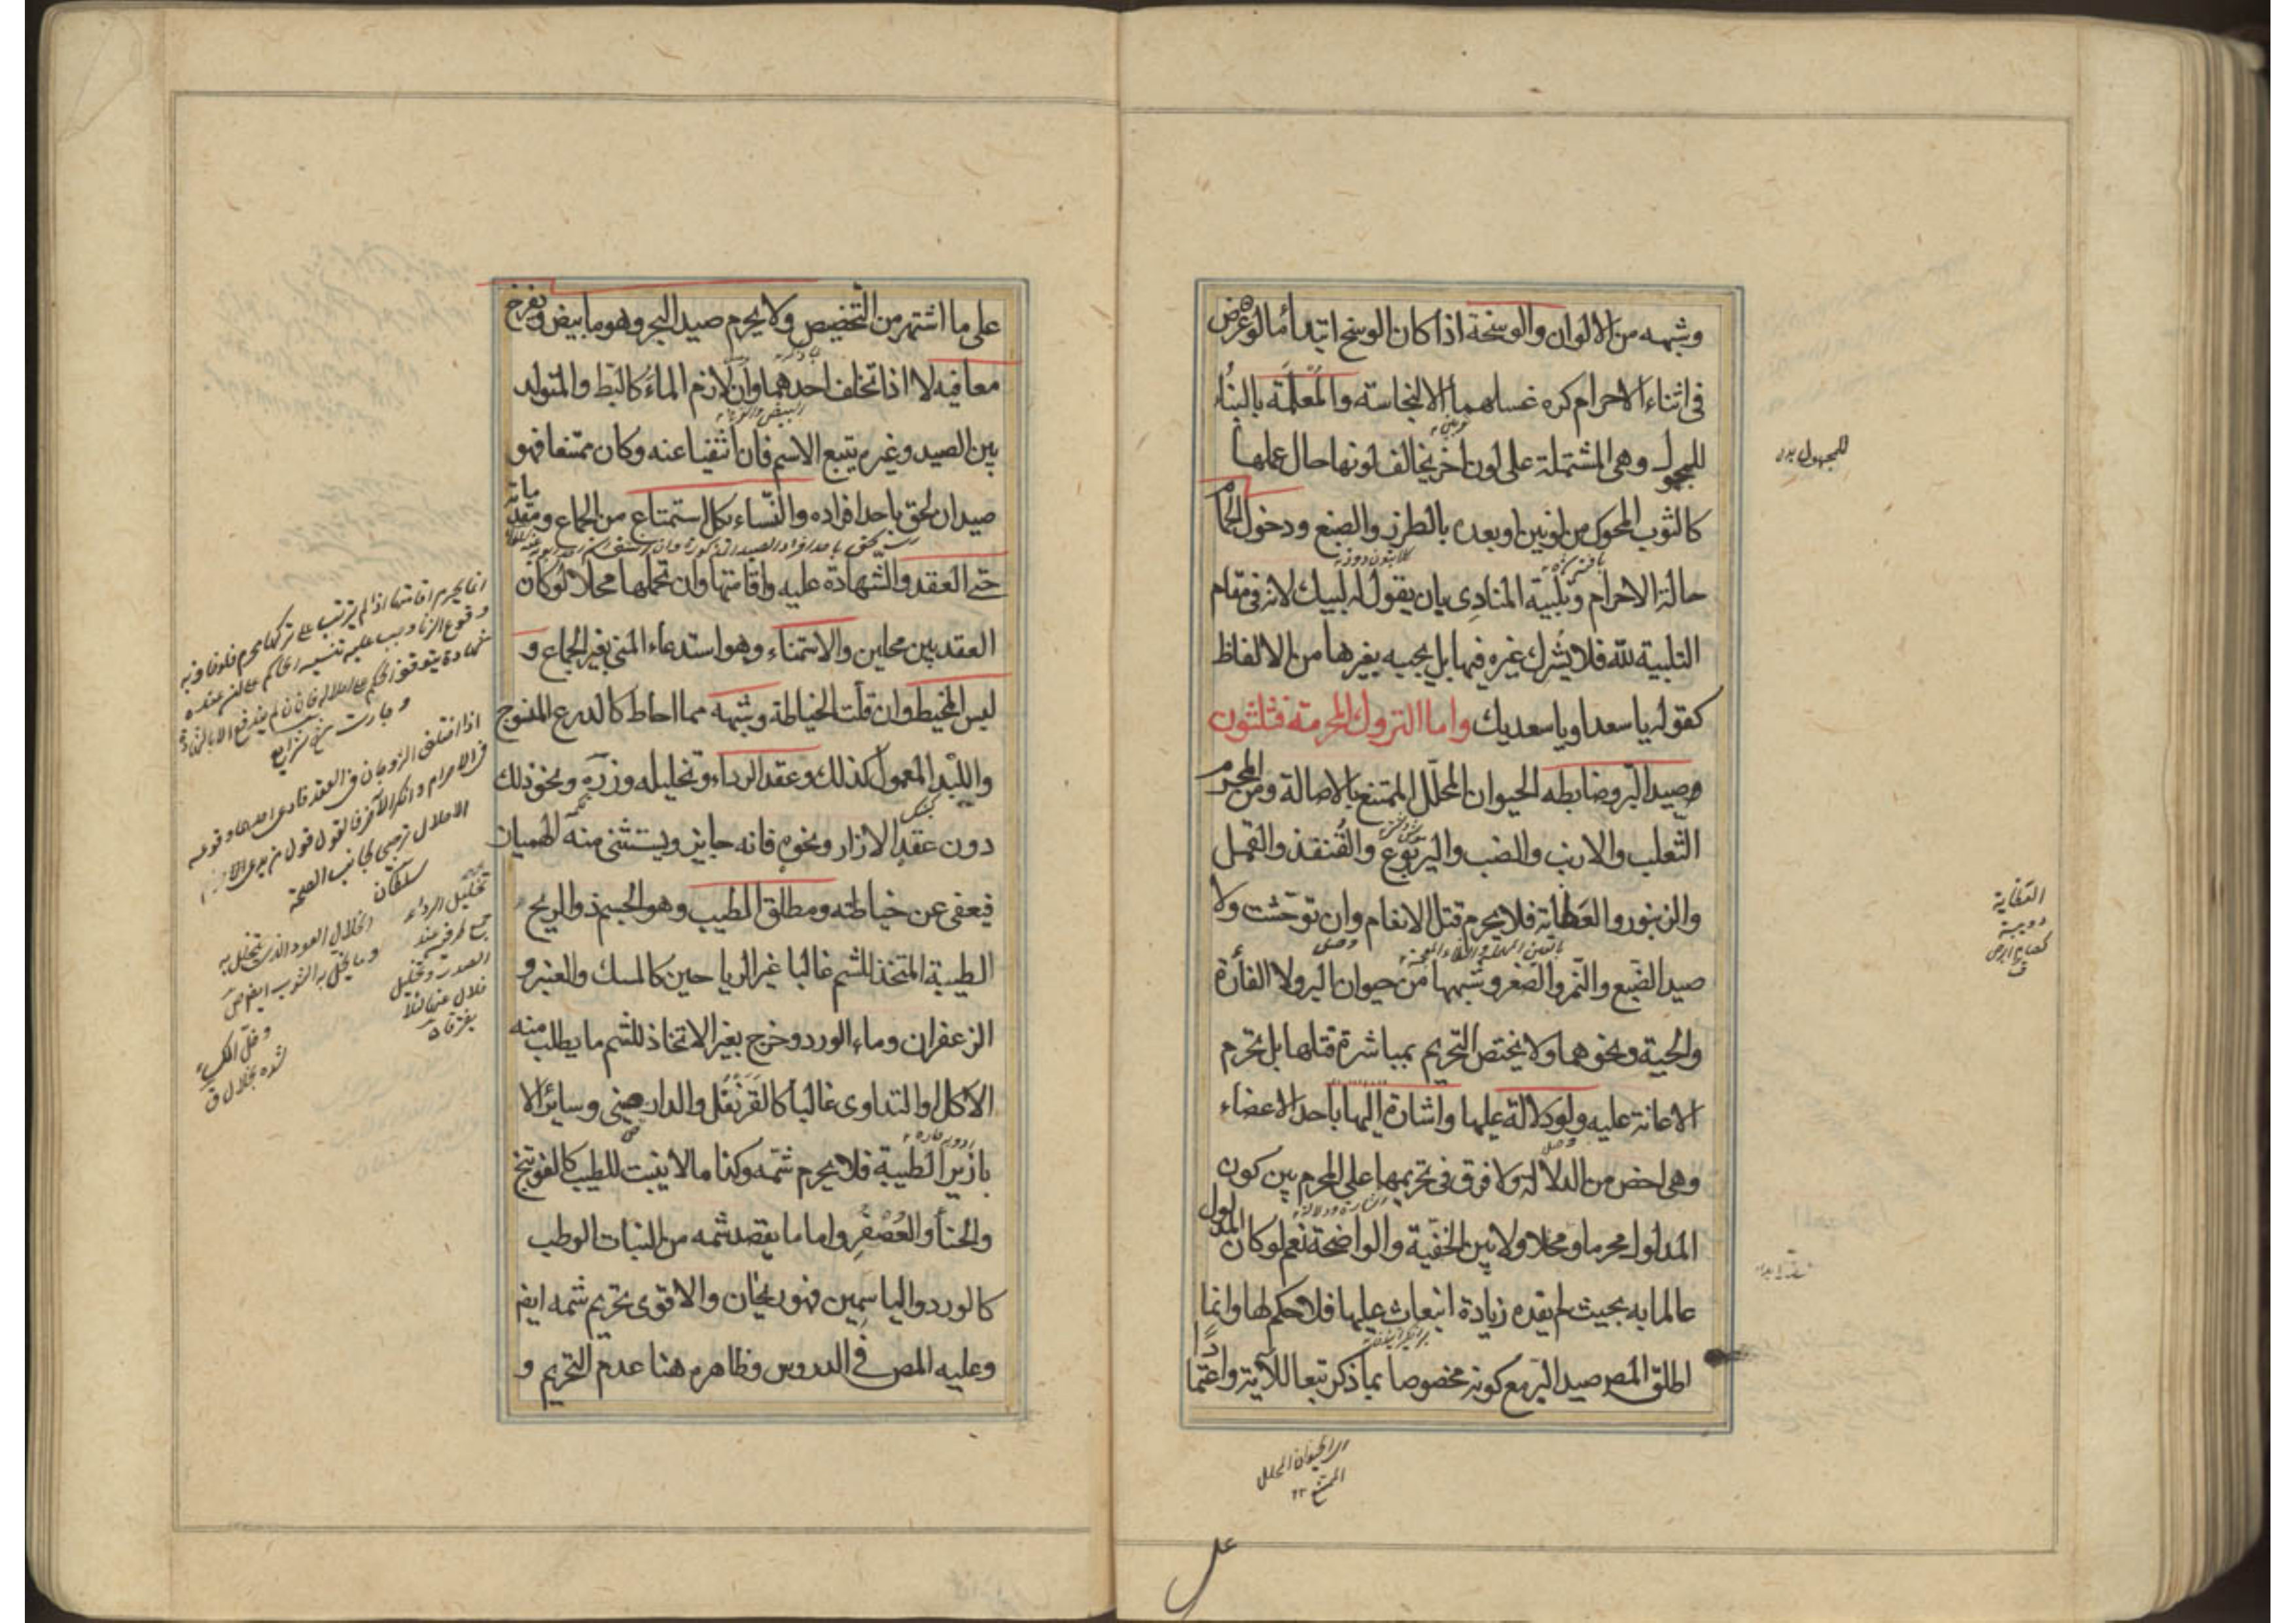 وشبهه من الالوان والوسخة اذا كان الوسخ ابتداء أما لو عرض
فى اثناء الاحرام كره غسلهما الا لنجاسة والمُعْلَمَة بالبناء
للمجهول وهى المشتملة على لون اخر يخالف لونها حال عملها
كالثوب المحوك من لونين او بعده بالطرز والصبغ ودخول الحمام
حالة الاحرام وتلبية المنادِى بان يقول له لبيك لانه فى مقام
التلبية لله فلا يشرك غيره فيها بل يجيبه بغيرها من الالفاظ
كقوله يا سعد او يا سعديك واما التروك المحرمة فثلثون
صيد البّر وضابطه الحيوان المحلّل الممتنع بالاصالة ومن المحرم
الثعلب والارنب والضب واليربوع والقُنفذ والقمل
والزنبور والعَظاية فلا يحرم قتل الانعام وان توحّشت ولا
صيد الضَبع والنّمر والصّقر وشبهها من حيوان البر ولا الفأرة
والحية ونحوهما ولا يختص التّحريم بمباشرة قتلها بل يحرم
الاعانة عليه ولو دلالة عليها واشارة اليها باحد الاعضاء
وهى اخص من الدلالة ولا فرق فى تحريمها على المحرم بين كون
المدلول محرما ومحلا ولا بين الخفيّة والواضحة نعم لو كان المدلول
عالما به بحيث لم يفده زيادة انبعاث عليها فلا حكم لها وانما
اطلق المص صيد البّر مع كونه مخصوصا بما ذكر تبعا للآية واعتمادًا
للمجهول بدل
العظاية
دويبة
كسام ابرص
ق
اى الحيوان المحلل
الممتنع ١٢
على
على ما اشتهر من التّخصيص ولا يحرم صيد البحر وهو ما يبيض ويفرخ
معا فيه لا اذا تخلف احدهما وان لازم الماءَ كالبّط والمتولد
بين الصيد وغيره يتبع الاسم فان انتفيا عنه وكان ممتنعا فهو
صيد ان لحق باحد افراده والنّساء بكل استمتاع من الجماع ومقدماته
حتى العقد والشهادة عليه واقامتها وان تحملها محلا او كان
العقد بين محلين والاستمناء وهو استدعاء المنى بغير الجماع و
لبس المخيط وان قلت الخياطة وشبهه مما احاط كالدرع المنسوج
واللِبْد المعمول كذلك وعقد الرداء وتخليله وزرّه ونحو ذلك
دون عقد الازار ونحوه فانه جايز ويستثنى منه الهميان
فيعفى عن خياطته ومطلق الطيب وهو الجسم ذو الريح
الطيبة المتخذ للشم غالبا غير الرياحين كالمسك والعنبر و
الزعفران وماء الورد وخرج بغير الاتخاذ للشم ما يطلب منه
الاكل او التداوى غالبا كالقَرَنْفُل والدارصينى وسائر الا
بازير الطيبة فلا يحرم شمّه وكذا ما لا ينبت للطيب كالفوتنج
والحنأ والعُصْفُر واما ما يقصد شمه من النبات الرطب
كالورد والياسمين فهو ريحان والاقوى تحريم شمه ايضا
وعليه المص فى الدروس وظاهره هنا عدم التحريم و
انما يحرم اقامتها اذا لم يترتب على تركها محرم
اذا اختلف الزوجان فى العقد فادعى احدهما وقوعه
فى الاحرام وانكر الآخر فالقول قول من يدعى
الاحلال ترجيحا لجانب الصحة
سلطان
تخليل الرداء
جمع طرفيه عند
الصدر
الخلال العود الذى يتخلل به
وما يخل به الثوب ايضا ص
وخلّ الكساء
شده بخلال ق